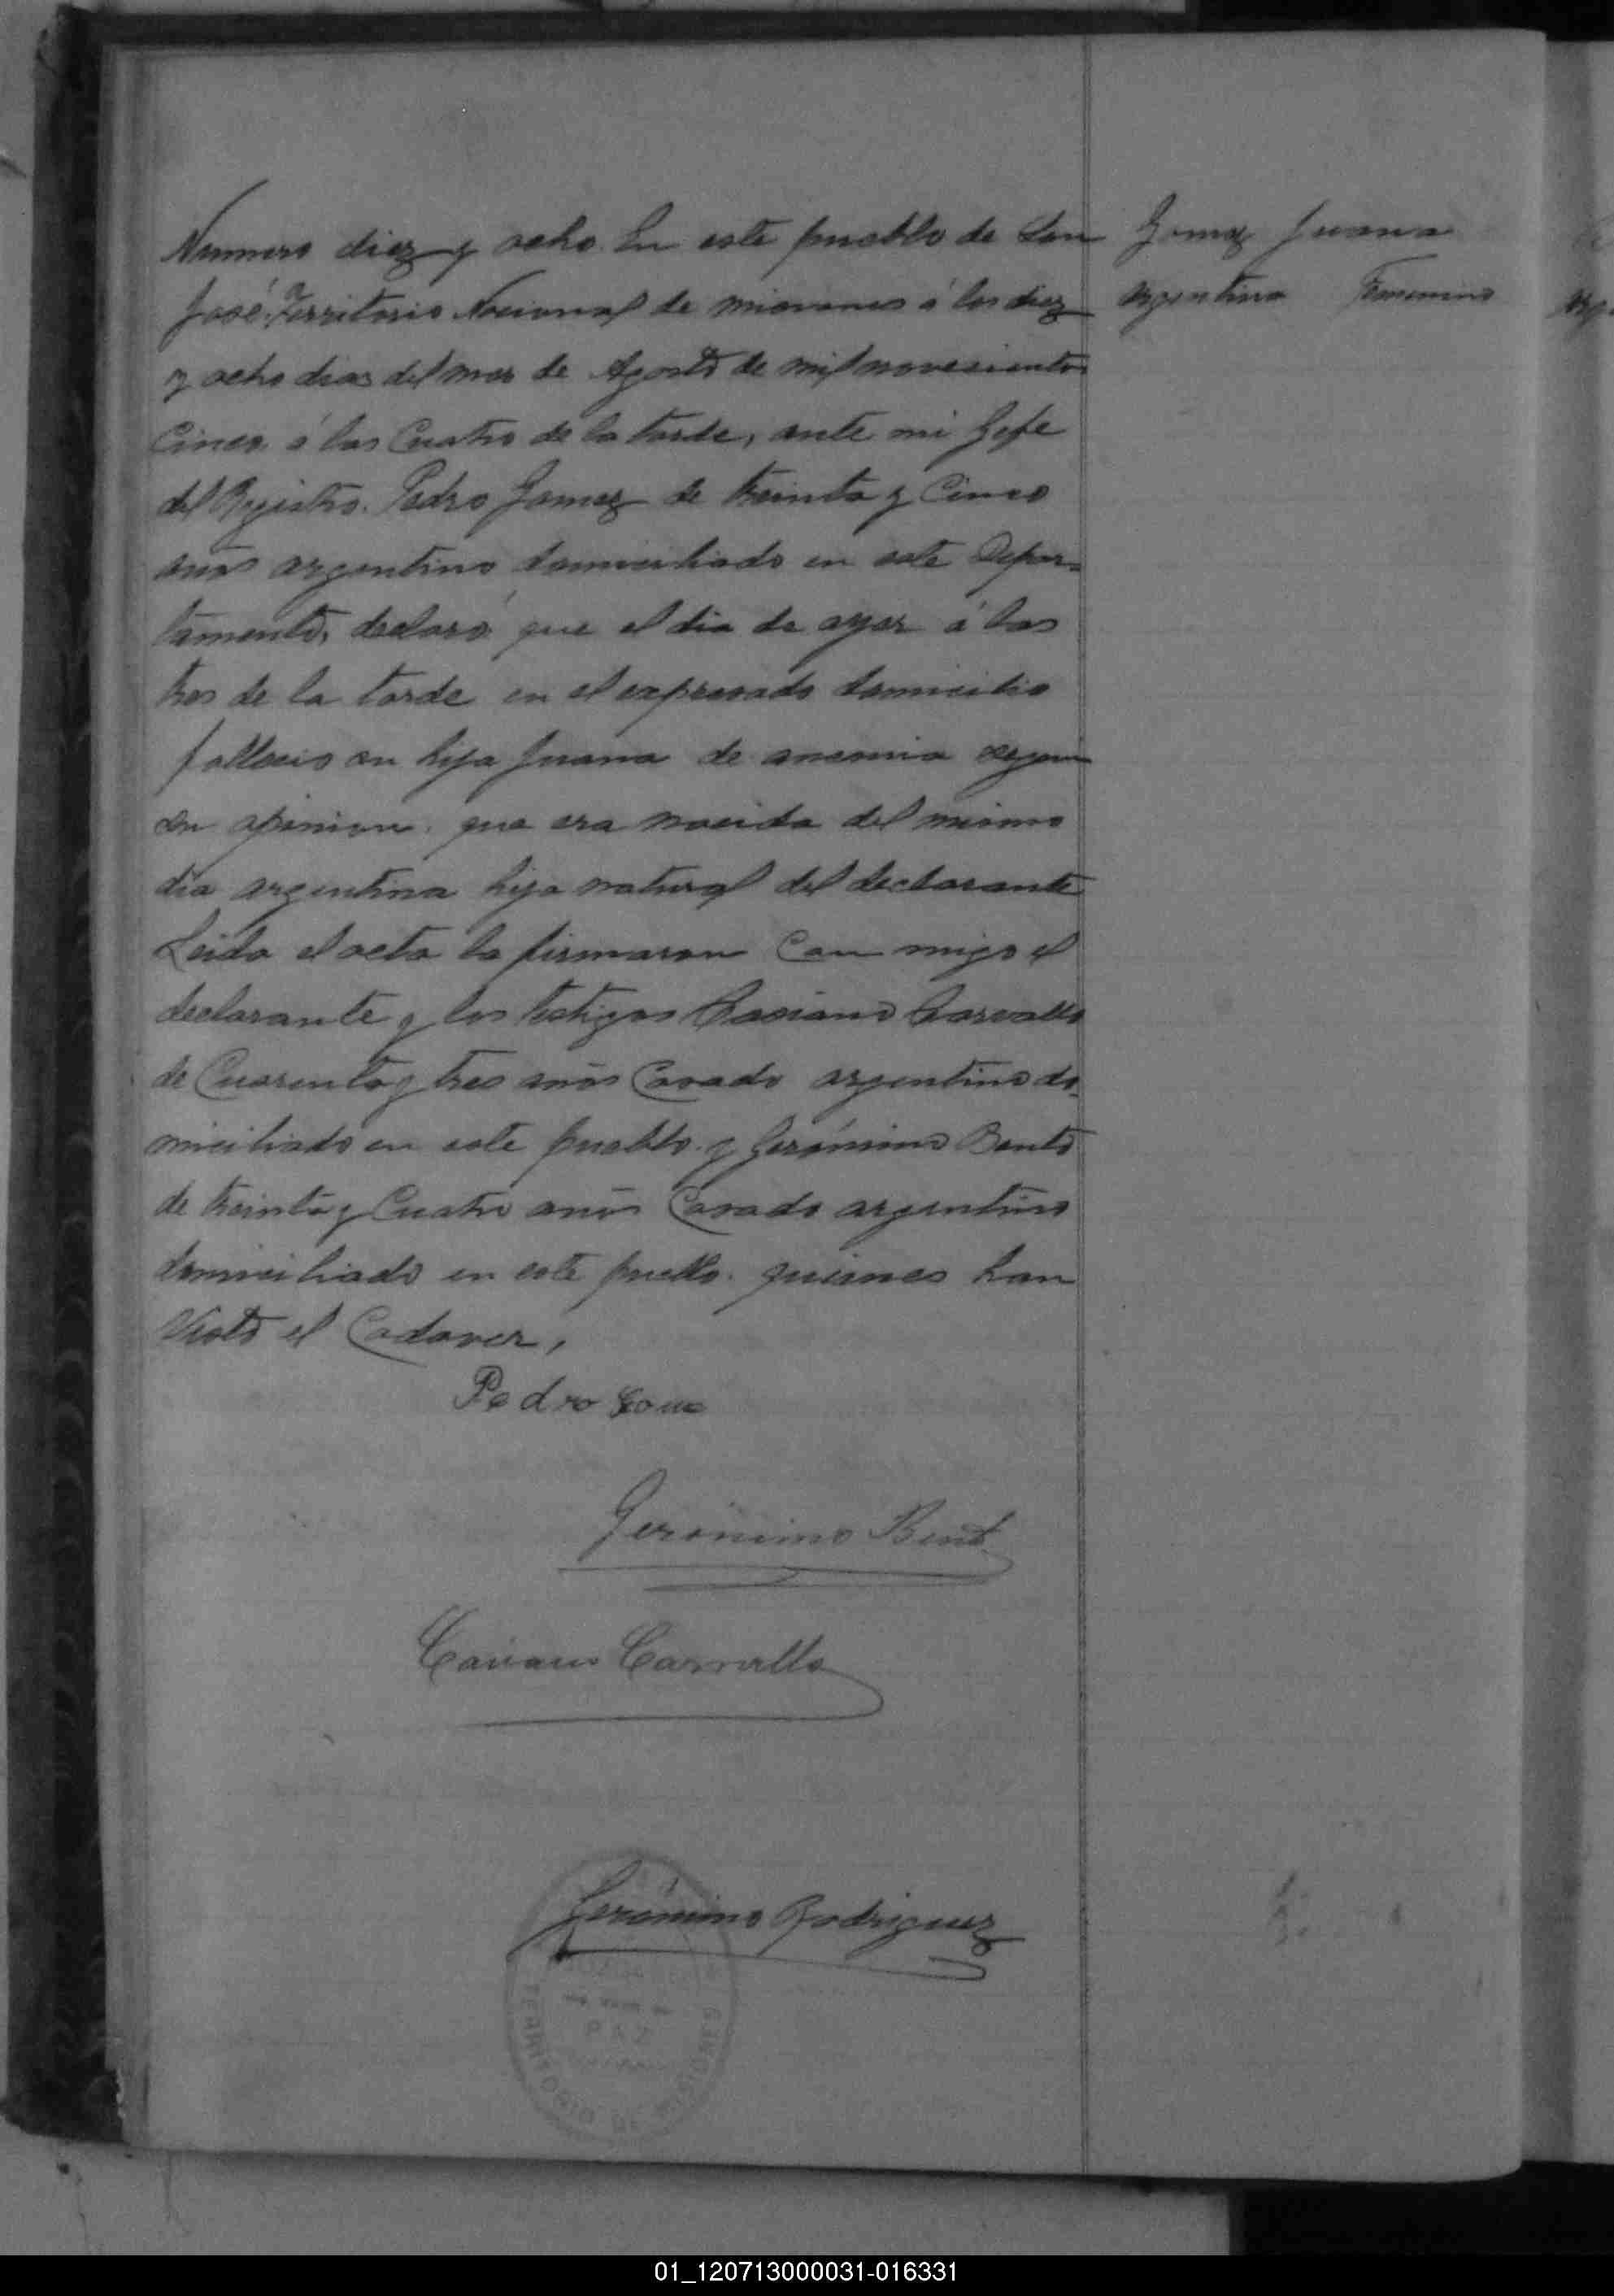 Numero diez y ocho. En este pueblo de San
José, Territorio Nacional de misiones á los diez
y ocho dias del mes de Agosto de mil novecientos
Cinco, á las Cuatro de la tarde, ante mi Gefe
del Registro. Pedro Gomez de treinta y Cinco
años argentino domiciliado en este Depar-
tamento, declaró que el dia de ayer á las
tres de la tarde en el expresado domicilio
fallecio su hija Juana de anemia segun
su opinion, que era nacida del mismo
dia argentina hija natural del declarante
Leida el acta la firmaron Con migo el
declarante y los testigos Casiano Carvallo
de Cuarenta y tres años Casado argentino do-
miciliado en este pueblo y Gerónimo Bento
de treinta y Cuatro años Casado argentino
domiciliado en este pueblo. quienes han
Visto el Cadaver,
Pedro Gome
Gerónimo Bento
Casiano Carvallo
Gerónimo Rodriguez
PAZ
TERRITORIO DE MISIONES
Gomez Juana
Argentina Femenino
01_120713000031-016331